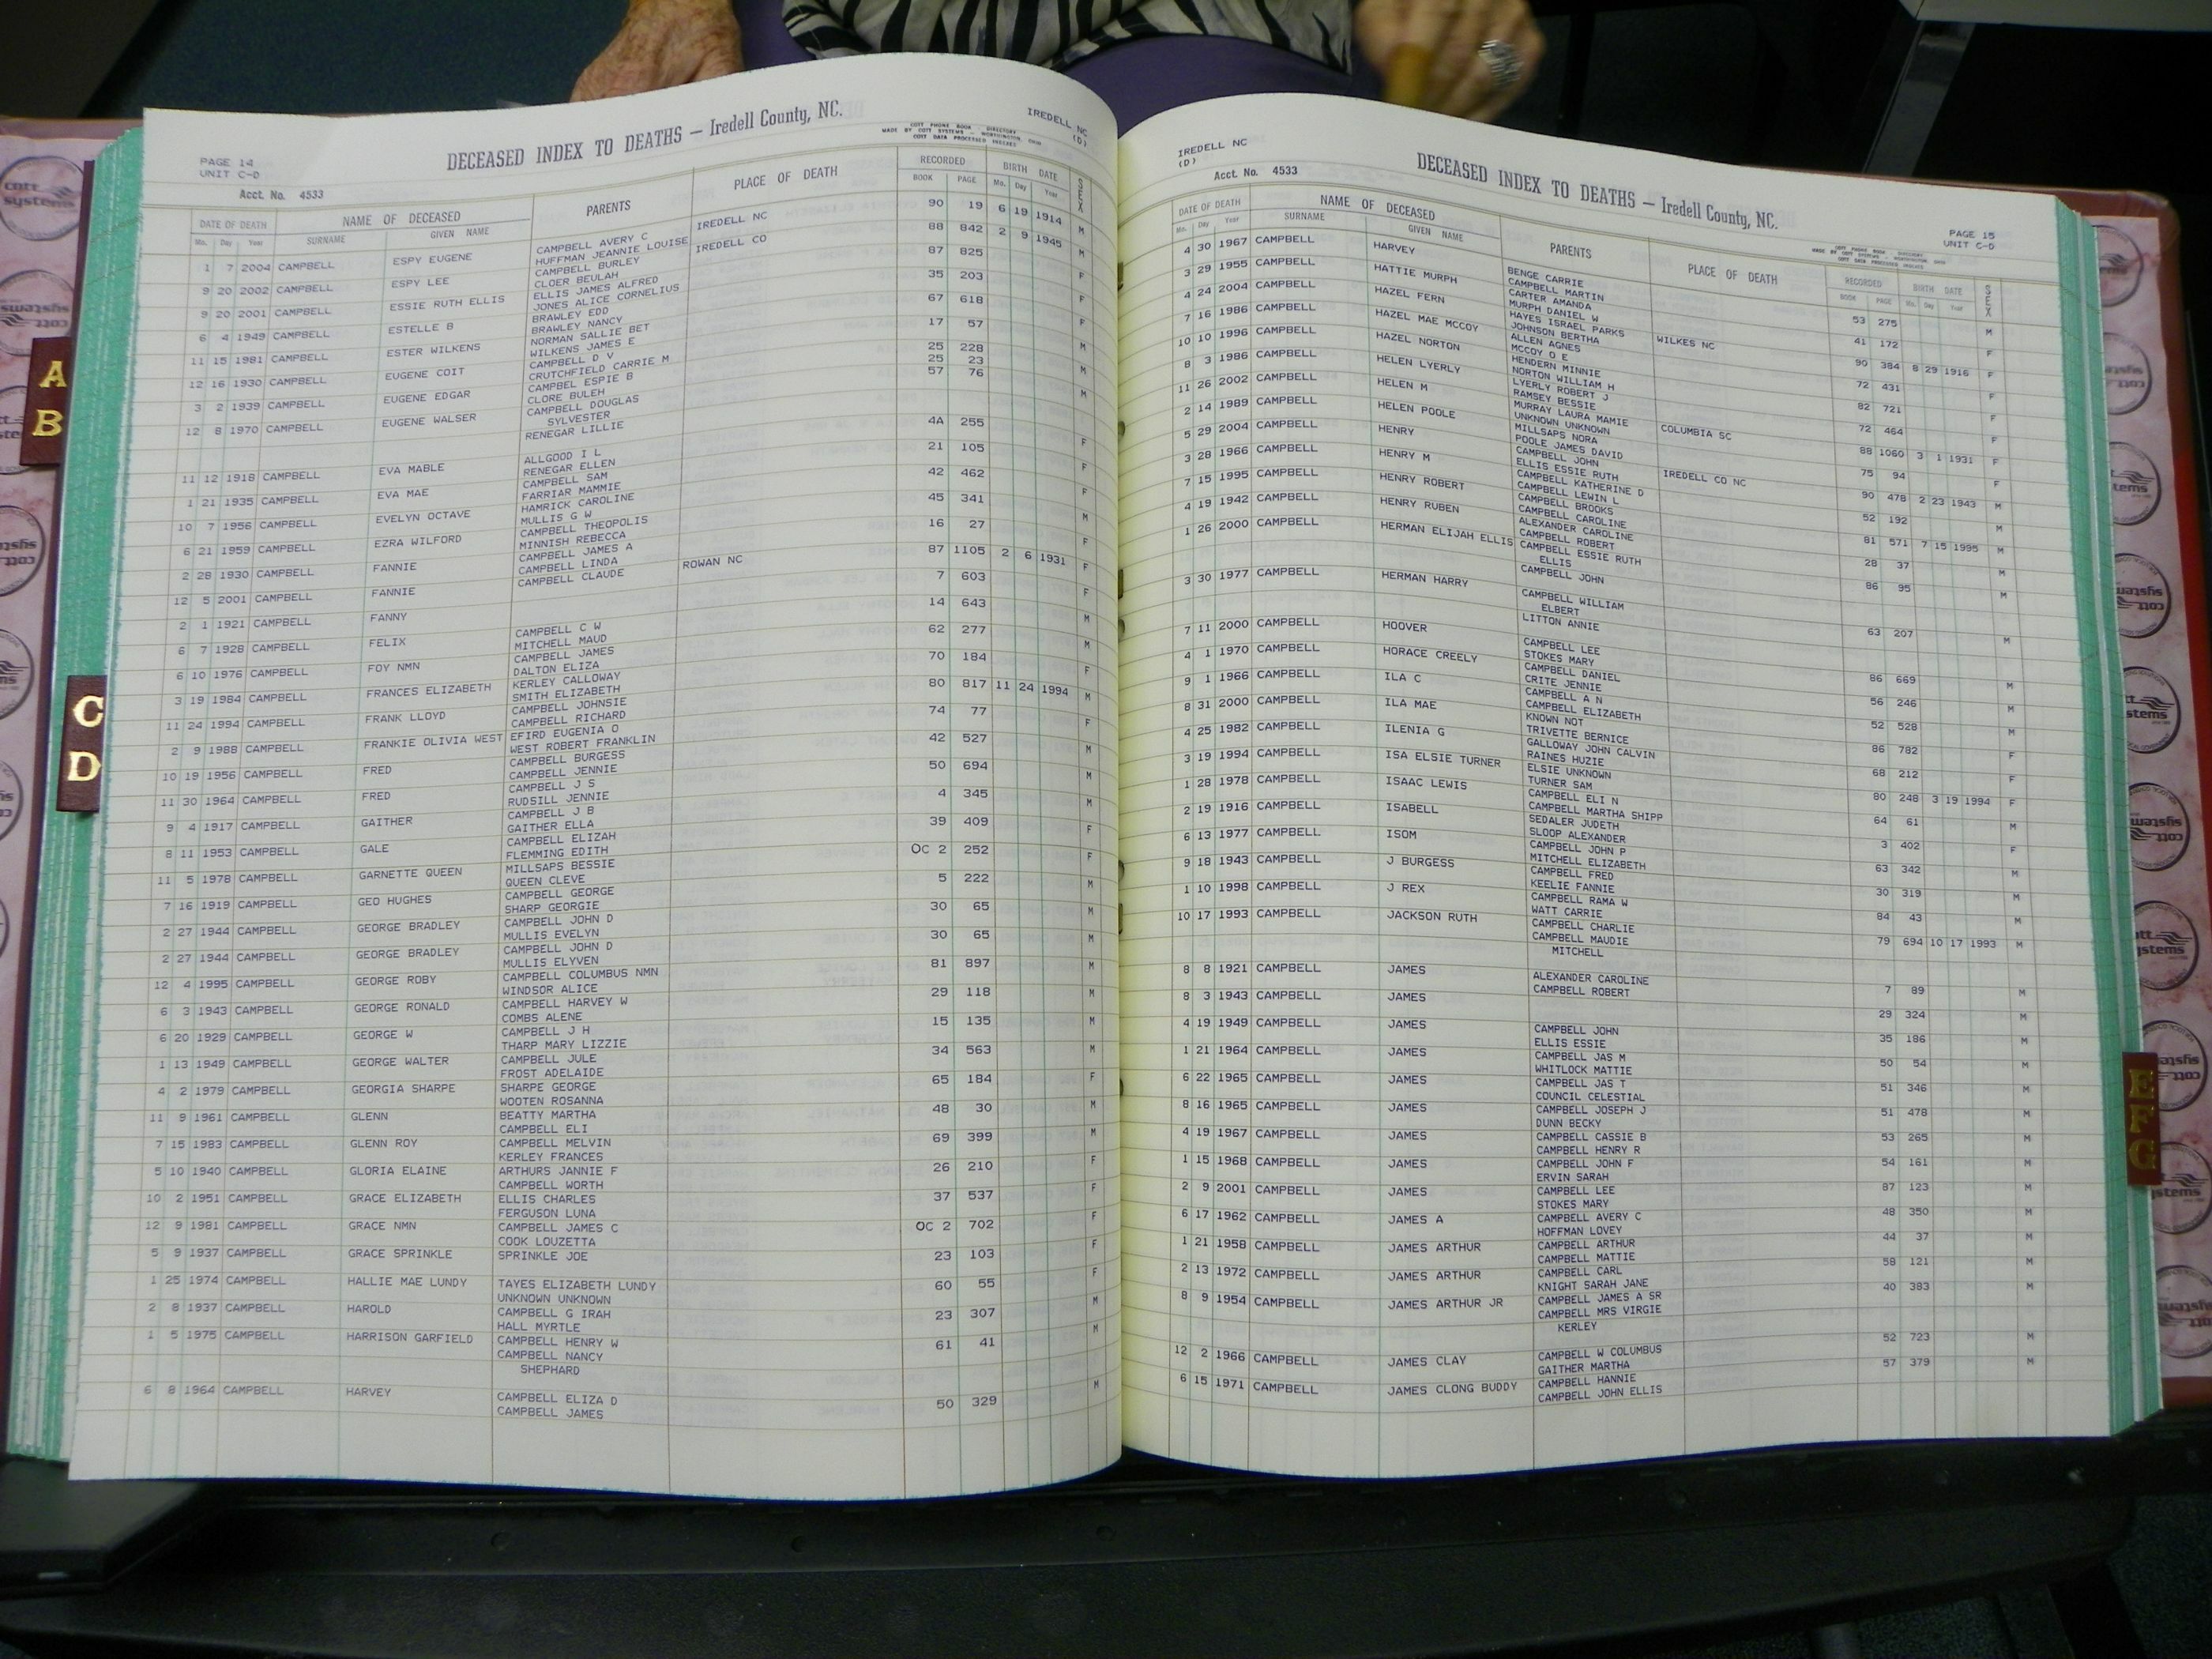 PAGE 14
UNIT C-D
DECEASED INDEX TO DEATHS — Iredell County, NC.
IREDELL NC
(D)
COTT PHONE BOOK DIRECTORY
MADE BY COTT SYSTEMS - WORTHINGTON OHIO
COTT DATA PROCESSED INDEXES
Acct. No. 4533
DATE OF DEATH NAME OF DECEASED PARENTS PLACE OF DEATH RECORDED BIRTH DATE SEX
Mo. Day Year SURNAME GIVEN NAME BOOK PAGE Mo. Day Year
1 7 2004 CAMPBELL ESPY EUGENE CAMPBELL AVERY C IREDELL NC 90 19 6 19 1914 M
HUFFMAN JEANNIE LOUISE
9 20 2002 CAMPBELL ESPY LEE CAMPBELL BURLEY IREDELL CO 88 842 2 9 1945 M
CLOER BEULAH
9 20 2001 CAMPBELL ESSIE RUTH ELLIS ELLIS JAMES ALFRED 87 825 F
JONES ALICE CORNELIUS
6 4 1949 CAMPBELL ESTELLE B BRAWLEY EDD 35 203 F
BRAWLEY NANCY
11 15 1981 CAMPBELL ESTER WILKENS NORMAN SALLIE BET 67 618 F
WILKENS JAMES E
12 16 1930 CAMPBELL EUGENE COIT CAMPBELL D V 17 57 M
CRUTCHFIELD CARRIE M
3 2 1939 CAMPBELL EUGENE EDGAR CAMPBEL ESPIE B 25 228 M
CLORE BULEH 25 23
12 8 1970 CAMPBELL EUGENE WALSER CAMPBELL DOUGLAS 57 76 M
SYLVESTER
RENEGAR LILLIE
11 12 1918 CAMPBELL EVA MABLE ALLGOOD I L 4A 255 F
RENEGAR ELLEN
1 21 1935 CAMPBELL EVA MAE CAMPBELL SAM 21 105 F
FARRIAR MAMMIE
10 7 1956 CAMPBELL EVELYN OCTAVE HAMRICK CAROLINE 42 462 F
MULLIS G W
6 21 1959 CAMPBELL EZRA WILFORD CAMPBELL THEOPOLIS 45 341 M
MINNISH REBECCA
2 28 1930 CAMPBELL FANNIE CAMPBELL JAMES A 16 27 F
CAMPBELL LINDA
12 5 2001 CAMPBELL FANNIE CAMPBELL CLAUDE ROWAN NC 87 1105 2 6 1931 F
2 1 1921 CAMPBELL FANNY 7 603 F
6 7 1928 CAMPBELL FELIX CAMPBELL C W 14 643 M
MITCHELL MAUD
6 10 1976 CAMPBELL FOY NMN CAMPBELL JAMES 62 277 M
DALTON ELIZA
3 19 1984 CAMPBELL FRANCES ELIZABETH KERLEY CALLOWAY 70 184 F
SMITH ELIZABETH
11 24 1994 CAMPBELL FRANK LLOYD CAMPBELL JOHNSIE 80 817 11 24 1994 M
CAMPBELL RICHARD
2 9 1988 CAMPBELL FRANKIE OLIVIA WEST EFIRD EUGENIA O 74 77 F
WEST ROBERT FRANKLIN
10 19 1956 CAMPBELL FRED CAMPBELL BURGESS 42 527 M
CAMPBELL JENNIE
11 30 1964 CAMPBELL FRED CAMPBELL J S 50 694 M
RUDSILL JENNIE
9 4 1917 CAMPBELL GAITHER CAMPBELL J B 4 345 M
GAITHER ELLA
8 11 1953 CAMPBELL GALE CAMPBELL ELIZAH 39 409 F
FLEMMING EDITH
11 5 1978 CAMPBELL GARNETTE QUEEN MILLSAPS BESSIE OC 2 252 F
QUEEN CLEVE
7 16 1919 CAMPBELL GEO HUGHES CAMPBELL GEORGE 5 222 M
SHARP GEORGIE
2 27 1944 CAMPBELL GEORGE BRADLEY CAMPBELL JOHN D 30 65 M
MULLIS EVELYN
2 27 1944 CAMPBELL GEORGE BRADLEY CAMPBELL JOHN D 30 65 M
MULLIS ELYVEN
12 4 1995 CAMPBELL GEORGE ROBY CAMPBELL COLUMBUS NMN 81 897 M
WINDSOR ALICE
6 3 1943 CAMPBELL GEORGE RONALD CAMPBELL HARVEY W 29 118 M
COMBS ALENE
6 20 1929 CAMPBELL GEORGE W CAMPBELL J H 15 135 M
THARP MARY LIZZIE
1 13 1949 CAMPBELL GEORGE WALTER CAMPBELL JULE 34 563 M
FROST ADELAIDE
4 2 1979 CAMPBELL GEORGIA SHARPE SHARPE GEORGE 65 184 F
WOOTEN ROSANNA
11 9 1961 CAMPBELL GLENN BEATTY MARTHA 48 30 M
CAMPBELL ELI
7 15 1983 CAMPBELL GLENN ROY CAMPBELL MELVIN 69 399 M
KERLEY FRANCES
5 10 1940 CAMPBELL GLORIA ELAINE ARTHURS JANNIE F 26 210 F
CAMPBELL WORTH
10 2 1951 CAMPBELL GRACE ELIZABETH ELLIS CHARLES 37 537 F
FERGUSON LUNA
12 9 1981 CAMPBELL GRACE NMN CAMPBELL JAMES C OC 2 702 F
COOK LOUZETTA
5 9 1937 CAMPBELL GRACE SPRINKLE SPRINKLE JOE 23 103 F
1 25 1974 CAMPBELL HALLIE MAE LUNDY TAYES ELIZABETH LUNDY 60 55 F
UNKNOWN UNKNOWN
2 8 1937 CAMPBELL HAROLD CAMPBELL G IRAH 23 307 M
HALL MYRTLE
1 5 1975 CAMPBELL HARRISON GARFIELD CAMPBELL HENRY W 61 41 M
CAMPBELL NANCY
SHEPHARD
6 8 1964 CAMPBELL HARVEY CAMPBELL ELIZA D 50 329 M
CAMPBELL JAMES
IREDELL NC
(D)
DECEASED INDEX TO DEATHS — Iredell County, NC.
PAGE 15
UNIT C-D
Acct. No. 4533
DATE OF DEATH NAME OF DECEASED PARENTS PLACE OF DEATH RECORDED BIRTH DATE SEX
Mo. Day Year SURNAME GIVEN NAME BOOK PAGE Mo. Day Year
4 30 1967 CAMPBELL HARVEY BENGE CARRIE 53 275 M
CAMPBELL MARTIN
3 29 1955 CAMPBELL HATTIE MURPH CARTER AMANDA 41 172 F
MURPH DANIEL W
4 24 2004 CAMPBELL HAZEL FERN HAYES ISRAEL PARKS WILKES NC 90 384 8 29 1916 F
JOHNSON BERTHA
7 16 1986 CAMPBELL HAZEL MAE MCCOY ALLEN AGNES 72 431 F
MCCOY O E
10 10 1996 CAMPBELL HAZEL NORTON HENDERN MINNIE 82 721 F
NORTON WILLIAM H
8 3 1986 CAMPBELL HELEN LYERLY LYERLY ROBERT J 72 464 F
RAMSEY BESSIE
11 26 2002 CAMPBELL HELEN M MURRAY LAURA MAMIE COLUMBIA SC 88 1060 3 1 1931 F
UNKNOWN UNKNOWN
2 14 1989 CAMPBELL HELEN POOLE MILLSAPS NORA 75 94 F
POOLE JAMES DAVID
5 29 2004 CAMPBELL HENRY CAMPBELL JOHN IREDELL CO NC 90 478 2 23 1943 M
ELLIS ESSIE RUTH
3 28 1966 CAMPBELL HENRY M CAMPBELL KATHERINE D 52 192 M
CAMPBELL LEWIN L
7 15 1995 CAMPBELL HENRY ROBERT CAMPBELL BROOKS 81 571 7 15 1995 M
CAMPBELL CAROLINE
4 19 1942 CAMPBELL HENRY RUBEN ALEXANDER CAROLINE 28 37 M
CAMPBELL ROBERT
1 26 2000 CAMPBELL HERMAN ELIJAH ELLIS CAMPBELL ESSIE RUTH 86 95 M
ELLIS
CAMPBELL JOHN
3 30 1977 CAMPBELL HERMAN HARRY CAMPBELL WILLIAM 63 207 M
ELBERT
LITTON ANNIE
7 11 2000 CAMPBELL HOOVER CAMPBELL LEE 86 669 M
STOKES MARY
4 1 1970 CAMPBELL HORACE CREELY CAMPBELL DANIEL 56 246 M
CRITE JENNIE
9 1 1966 CAMPBELL ILA C CAMPBELL A N 52 528 M
CAMPBELL ELIZABETH
8 31 2000 CAMPBELL ILA MAE KNOWN NOT 86 782 F
TRIVETTE BERNICE
4 25 1982 CAMPBELL ILENIA G GALLOWAY JOHN CALVIN 68 212 F
RAINES HUZIE
3 19 1994 CAMPBELL ISA ELSIE TURNER ELSIE UNKNOWN 80 248 3 19 1994 F
TURNER SAM
1 28 1978 CAMPBELL ISAAC LEWIS CAMPBELL ELI N 64 61 M
CAMPBELL MARTHA SHIPP
2 19 1916 CAMPBELL ISABELL SEDALER JUDETH 3 402 F
SLOOP ALEXANDER
6 13 1977 CAMPBELL ISOM CAMPBELL JOHN P 63 342 M
MITCHELL ELIZABETH
9 18 1943 CAMPBELL J BURGESS CAMPBELL FRED 30 319 M
KEELIE FANNIE
1 10 1998 CAMPBELL J REX CAMPBELL RAMA W 84 43 M
WATT CARRIE
10 17 1993 CAMPBELL JACKSON RUTH CAMPBELL CHARLIE 79 694 10 17 1993 M
CAMPBELL MAUDIE
MITCHELL
8 8 1921 CAMPBELL JAMES ALEXANDER CAROLINE 7 89 M
CAMPBELL ROBERT
8 3 1943 CAMPBELL JAMES 29 324 M
4 19 1949 CAMPBELL JAMES CAMPBELL JOHN 35 186 M
ELLIS ESSIE
1 21 1964 CAMPBELL JAMES CAMPBELL JAS M 50 54 M
WHITLOCK MATTIE
6 22 1965 CAMPBELL JAMES CAMPBELL JAS T 51 346 M
COUNCIL CELESTIAL
8 16 1965 CAMPBELL JAMES CAMPBELL JOSEPH J 51 478 M
DUNN BECKY
4 19 1967 CAMPBELL JAMES CAMPBELL CASSIE B 53 265 M
CAMPBELL HENRY R
1 15 1968 CAMPBELL JAMES CAMPBELL JOHN F 54 161 M
ERVIN SARAH
2 9 2001 CAMPBELL JAMES CAMPBELL LEE 87 123 M
STOKES MARY
6 17 1962 CAMPBELL JAMES A CAMPBELL AVERY C 48 350 M
HOFFMAN LOVEY
1 21 1958 CAMPBELL JAMES ARTHUR CAMPBELL ARTHUR 44 37 M
CAMPBELL MATTIE
2 13 1972 CAMPBELL JAMES ARTHUR CAMPBELL CARL 58 121 M
KNIGHT SARAH JANE
8 9 1954 CAMPBELL JAMES ARTHUR JR CAMPBELL JAMES A SR 40 383 M
CAMPBELL MRS VIRGIE
KERLEY
12 2 1966 CAMPBELL JAMES CLAY CAMPBELL W COLUMBUS 52 723 M
GAITHER MARTHA
6 15 1971 CAMPBELL JAMES CLONG BUDDY CAMPBELL HANNIE 57 379 M
CAMPBELL JOHN ELLIS
A
B
C
D
E
F
G
cott
systems